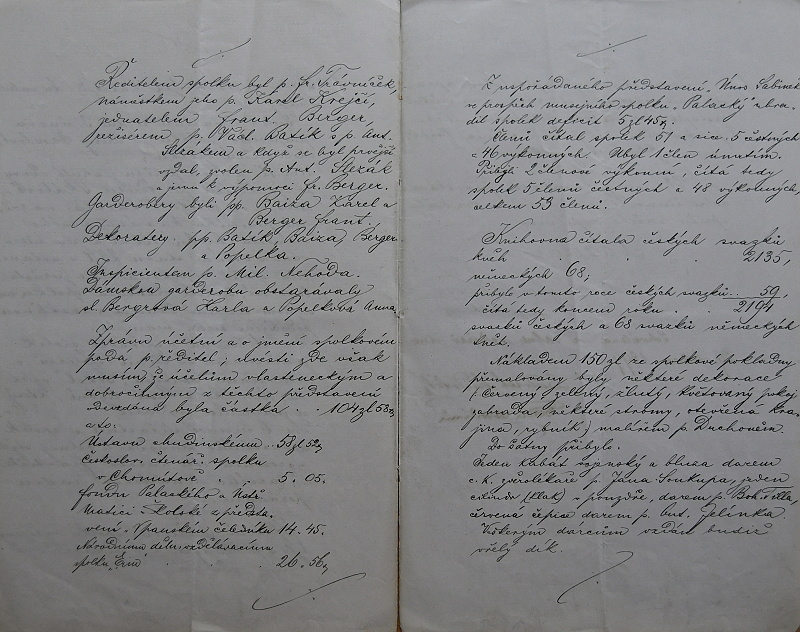 Ředitelem spolku byl p. Fr. Trávníček,
náměstkem jeho p. Karel Krejčí,
jednatelem Frant. Berger,
režisérem p. Vádl. Batík, p. Ant.
Slezákem a když se byl později
vzdal, zvolen p. Ant. Slezák
a jemu k výpomoci Fr. Berger.
Garderobiery byli pp. Baiza Karel a
Berger Frant.
Dekoratery pp. Batík, Baiza, Berger
a Popelka.
Inspicientem p. Mil. Nehoda.
Dámskou garderobu obstarávaly
sl. Bergrová Karla a Popelková Anna.
Zprávu účetní a o jmění spolkovém
podá p. ředitel; uvésti zde však
musím, že účelům vlasteneckým a
dobročinným z těchto představení
odevzdána byla částka . . 104 zl 58
a to:
Ústavu chudinskému .. 58 zl 52
Českoslov. čtenář. spolku
v Chomutově . 5. 05.
fondu Palackého a Ústř.
Matici školské z předsta-
vení 14. 45.
Národnímu děln. vzdělávacímu
spolku . . 26. 56
Z uspořádaného představení „Únos Sabinek"
ve prospěch musejního spolku „Palacký" uhra-
dil spolek deficit 5 zl 45
Členů čítal spolek 51 a sice 5 čestných
a 46 výkonných. Ubyl 1 člen úmrtím.
Přibyli 2 členové výkonní, čítá tedy
spolek 5 členů čestných a 48 výkonných,
celkem 53 členů.
Knihovna čítala českých svazků
knih . . . 2135,
německých 68;
přibylo v tomto roce českých svazků .. 59,
čítá tedy koncem roku . . 2194
svazků českých a 68 svazků německých
knih.
Nákladem 150 zl ze spolkové pokladny
přemalovány byly některé dekorace
(Červený, zelený, žlutý, květovaný pokoj
zahrada, některé stromy, otevřená kra-
jina, rybník) malířem p. Duchoněm.
Do šatny přibylo:
Jeden kabát vojenský a bluza darem
c. k. zvěrolékaře p. Jana Soukupa, jeden
cilindr (klak) v pouzdře, darem p. Boh. Filla,
červená čepice darem p. Ant. Jelínka.
Veškerým dárcům vzdán budiž
vřelý dík.